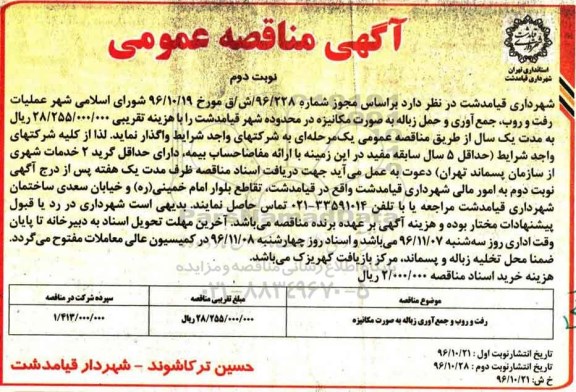 آگهی مناقصه عمومی
استانداری تهران
شهرداری قیامدشت
نوبت دوم
شهرداری قیامدشت در نظر دارد براساس مجوز شماره ۹۶/۲۲۸/ش/ق مورخ ۹۶/۱۰/۱۹ شورای اسلامی شهر عملیات
رفت و روب، جمع آوری و حمل زباله به صورت مکانیزه در محدوده شهر قیامدشت را با هزینه تقریبی ۲۸/۲۵۵/۰۰۰/۰۰۰ ریال
به مدت یک سال از طریق مناقصه عمومی یک‌مرحله‌ای به شرکتهای واجد شرایط واگذار نماید. لذا از کلیه شرکتهای
واجد شرایط (حداقل ۵ سال سابقه مفید در این زمینه با ارائه مفاصاحساب بیمه، دارای حداقل گرید ۲ خدمات شهری
از سازمان پسماند تهران) دعوت به عمل می‌آید جهت دریافت اسناد مناقصه ظرف مدت یک هفته پس از درج آگهی
نوبت دوم به امور مالی شهرداری قیامدشت واقع در قیامدشت، تقاطع بلوار امام خمینی(ره) و خیابان سعدی ساختمان
شهرداری قیامدشت مراجعه یا با تلفن ۳۳۵۹۱۰۱۴-۰۲۱ تماس حاصل نمایند. بدیهی است شهرداری در رد یا قبول
پیشنهادات مختار بوده و هزینه آگهی بر عهده برنده مناقصه می‌باشد. آخرین مهلت تحویل اسناد به دبیرخانه تا پایان
وقت اداری روز سه‌شنبه ۹۶/۱۱/۰۷ می‌باشد و اسناد روز چهارشنبه ۹۶/۱۱/۰۸ در کمیسیون عالی معاملات مفتوح می‌گردد.
ضمنا محل تخلیه زباله و پسماند، مرکز بازیافت کهریزک می‌باشد.
هزینه خرید اسناد مناقصه ۲/۰۰۰/۰۰۰ ریال
موضوع مناقصه مبلغ تقریبی مناقصه سپرده شرکت در مناقصه
رفت و روب و جمع آوری زباله به صورت مکانیزه ۲۸/۲۵۵/۰۰۰/۰۰۰ ریال ۱/۴۱۳/۰۰۰/۰۰۰
تاریخ انتشار نوبت اول : ۹۶/۱۰/۲۱
تاریخ انتشار نوبت دوم : ۹۶/۱۰/۲۸
خ ش: ۹۶/۱۰/۲۱
حسین ترکاشوند - شهردار قیامدشت
ParsNamadData
۰۲۱-۸۸۳۴۹۶۷۰-۵